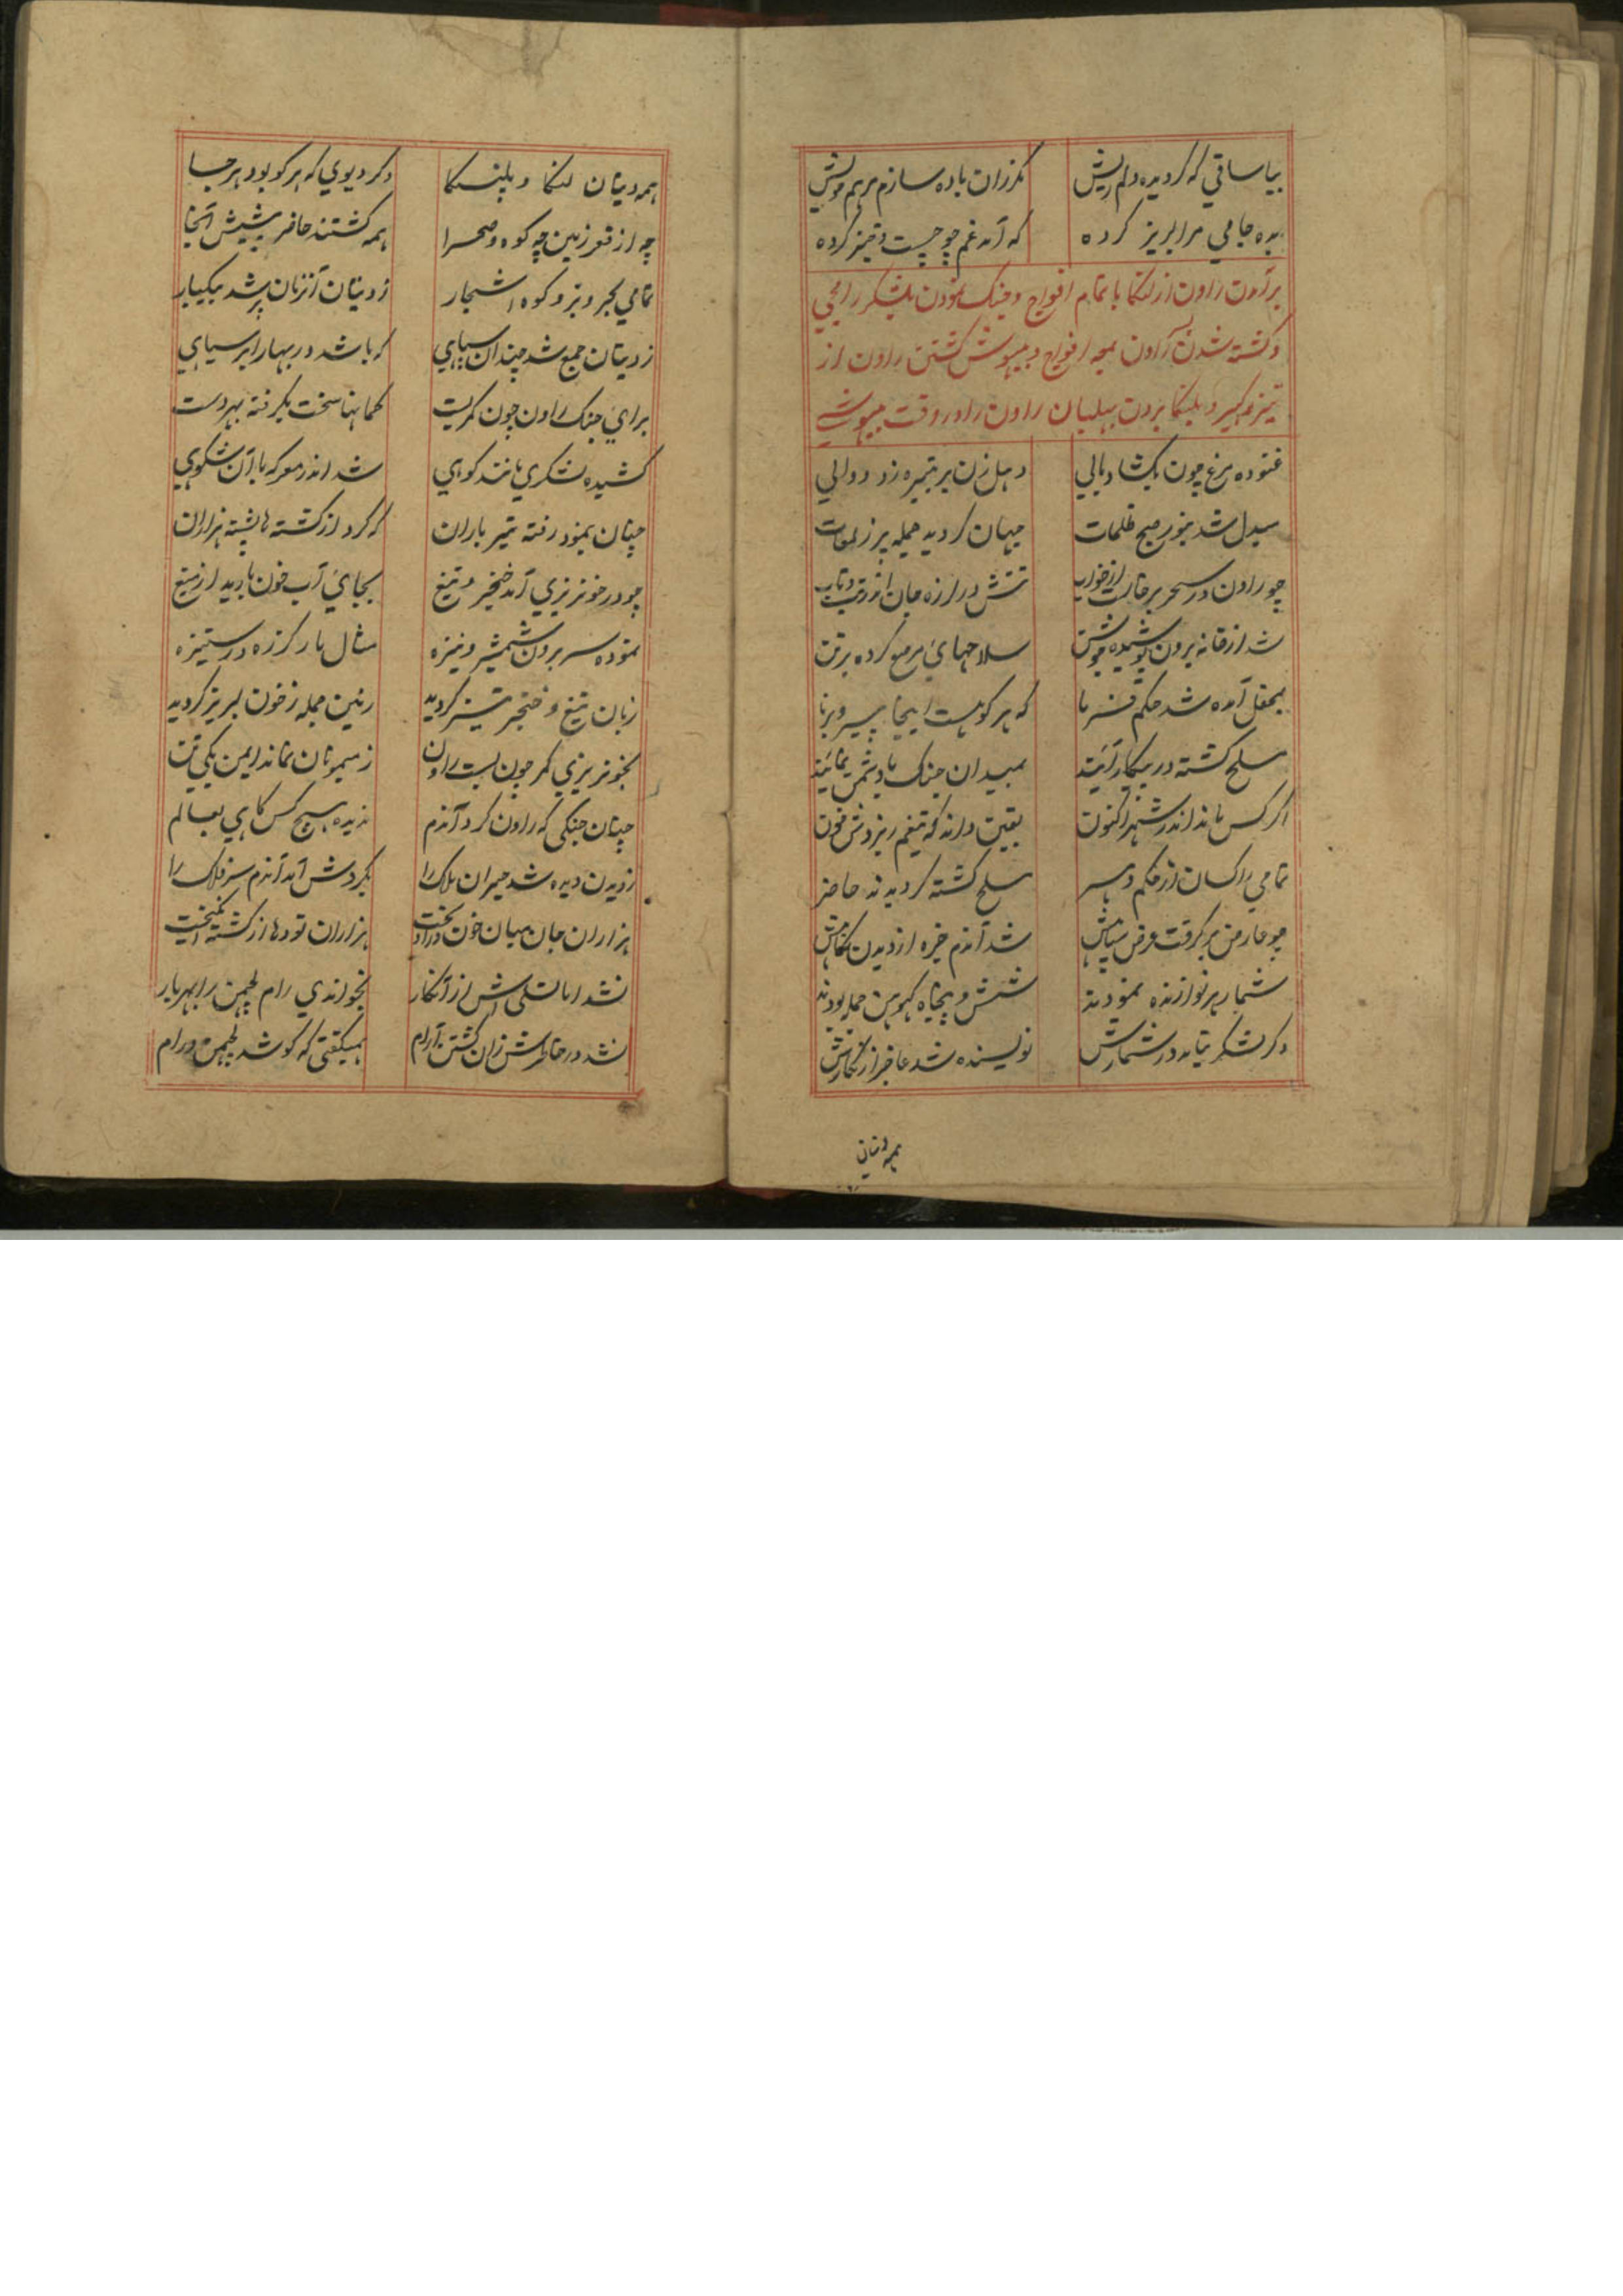 بیا ساقی که گردیده دلم ریش    کزان باده سازم مرهم خویش
بده جامی مرا لبریز کرده    که آمد غم چو چست و تیز کرده
برآمدن راون از لنکا با تمام افواج و جنگ نمودن بلشکر
و کشته شدن افواج و بیهوش گشتن راون از
تیر و بلنکا بردن راون را در وقت بیهوشی
غنوده مرغ چون بگشاد بالی    دهل زن بر تبیره زد دوالی
مبدل شد بنور صبح ظلمات    جهان گردید جمله پر ز لمعات
چو راون در سحر برخاست از خواب    تنش در لرزه جان از تب و تاب
شد از خانه برون پوشیده جوشن    سلاحهای مرصع کرده بر تن
بمحفل آمده شد حکم فرما    که هر کو هست اینجا پیر و برنا
مسلح گشته در پیکار آیند    بمیدان جنگ با دشمن نمایند
اگر کس ماند اندر شهر اکنون    یقین داند که تیغم ریزدش خون
تمامی راکسان از حکم    مسلح گشته گردیدند حاضر
چو عارض برگرفت عرض سپاهش    شد آندم خیره از دیدن نگاهش
شمار هر نوازنده نمودند    شش و پنجاه کهوهن جمله بودند
دگر لشکر نیامد در شمارش    نویسنده شد عاجز از نگارش
همه دیتان
همه دیتان لنکا و پلنکا    دگر دیوی که هر کو بود هر جا
چه از قعر زمین چه کوه و صحرا    همه گشتند حاضر پیشش آنجا
تمامی بحر و بر و کوه و اشجار    ز دیتان آنزمان پر شد بیکبار
ز دیتان جمع شد چندان سپاهی    که باشد در بهار ابر سیاهی
برای جنگ راون چون کمر بست    کمانها سخت بگرفته بهر دست
کشیده لشکری مانند کوهی    شد اندر معرکه با آن شکوهی
چنان بنمود رفته تیر باران    که کرد از کشته‌ها پشته هزاران
چو در خونریزی آمد خنجر و تیغ    بجای آب خون بارید از میغ
نموده سر برون شمشیر و نیزه    مثال مار گرزه در ستیزه
زبان تیغ و خنجر تیز گردید    زمین جمله ز خون لبریز گردید
بخونریزی کمر چون بست راون    ز میمونان نماند ایمن یکی تن
چنان جنگی که راون کرد آندم    ندیده هیچ کس گاهی بعالم
ز دیدن دیده شد حیران ملک را    بگردش آمد آندم سر فلک را
هزاران جان میان خون    هزاران تودها از کشته
نشد اما تسلی اش از آنکار    بخواندی رام لچمن را بهر بار
نشد در خاطرش زان کشتن آرام    همیگفتی که کو شد لچمن و رام